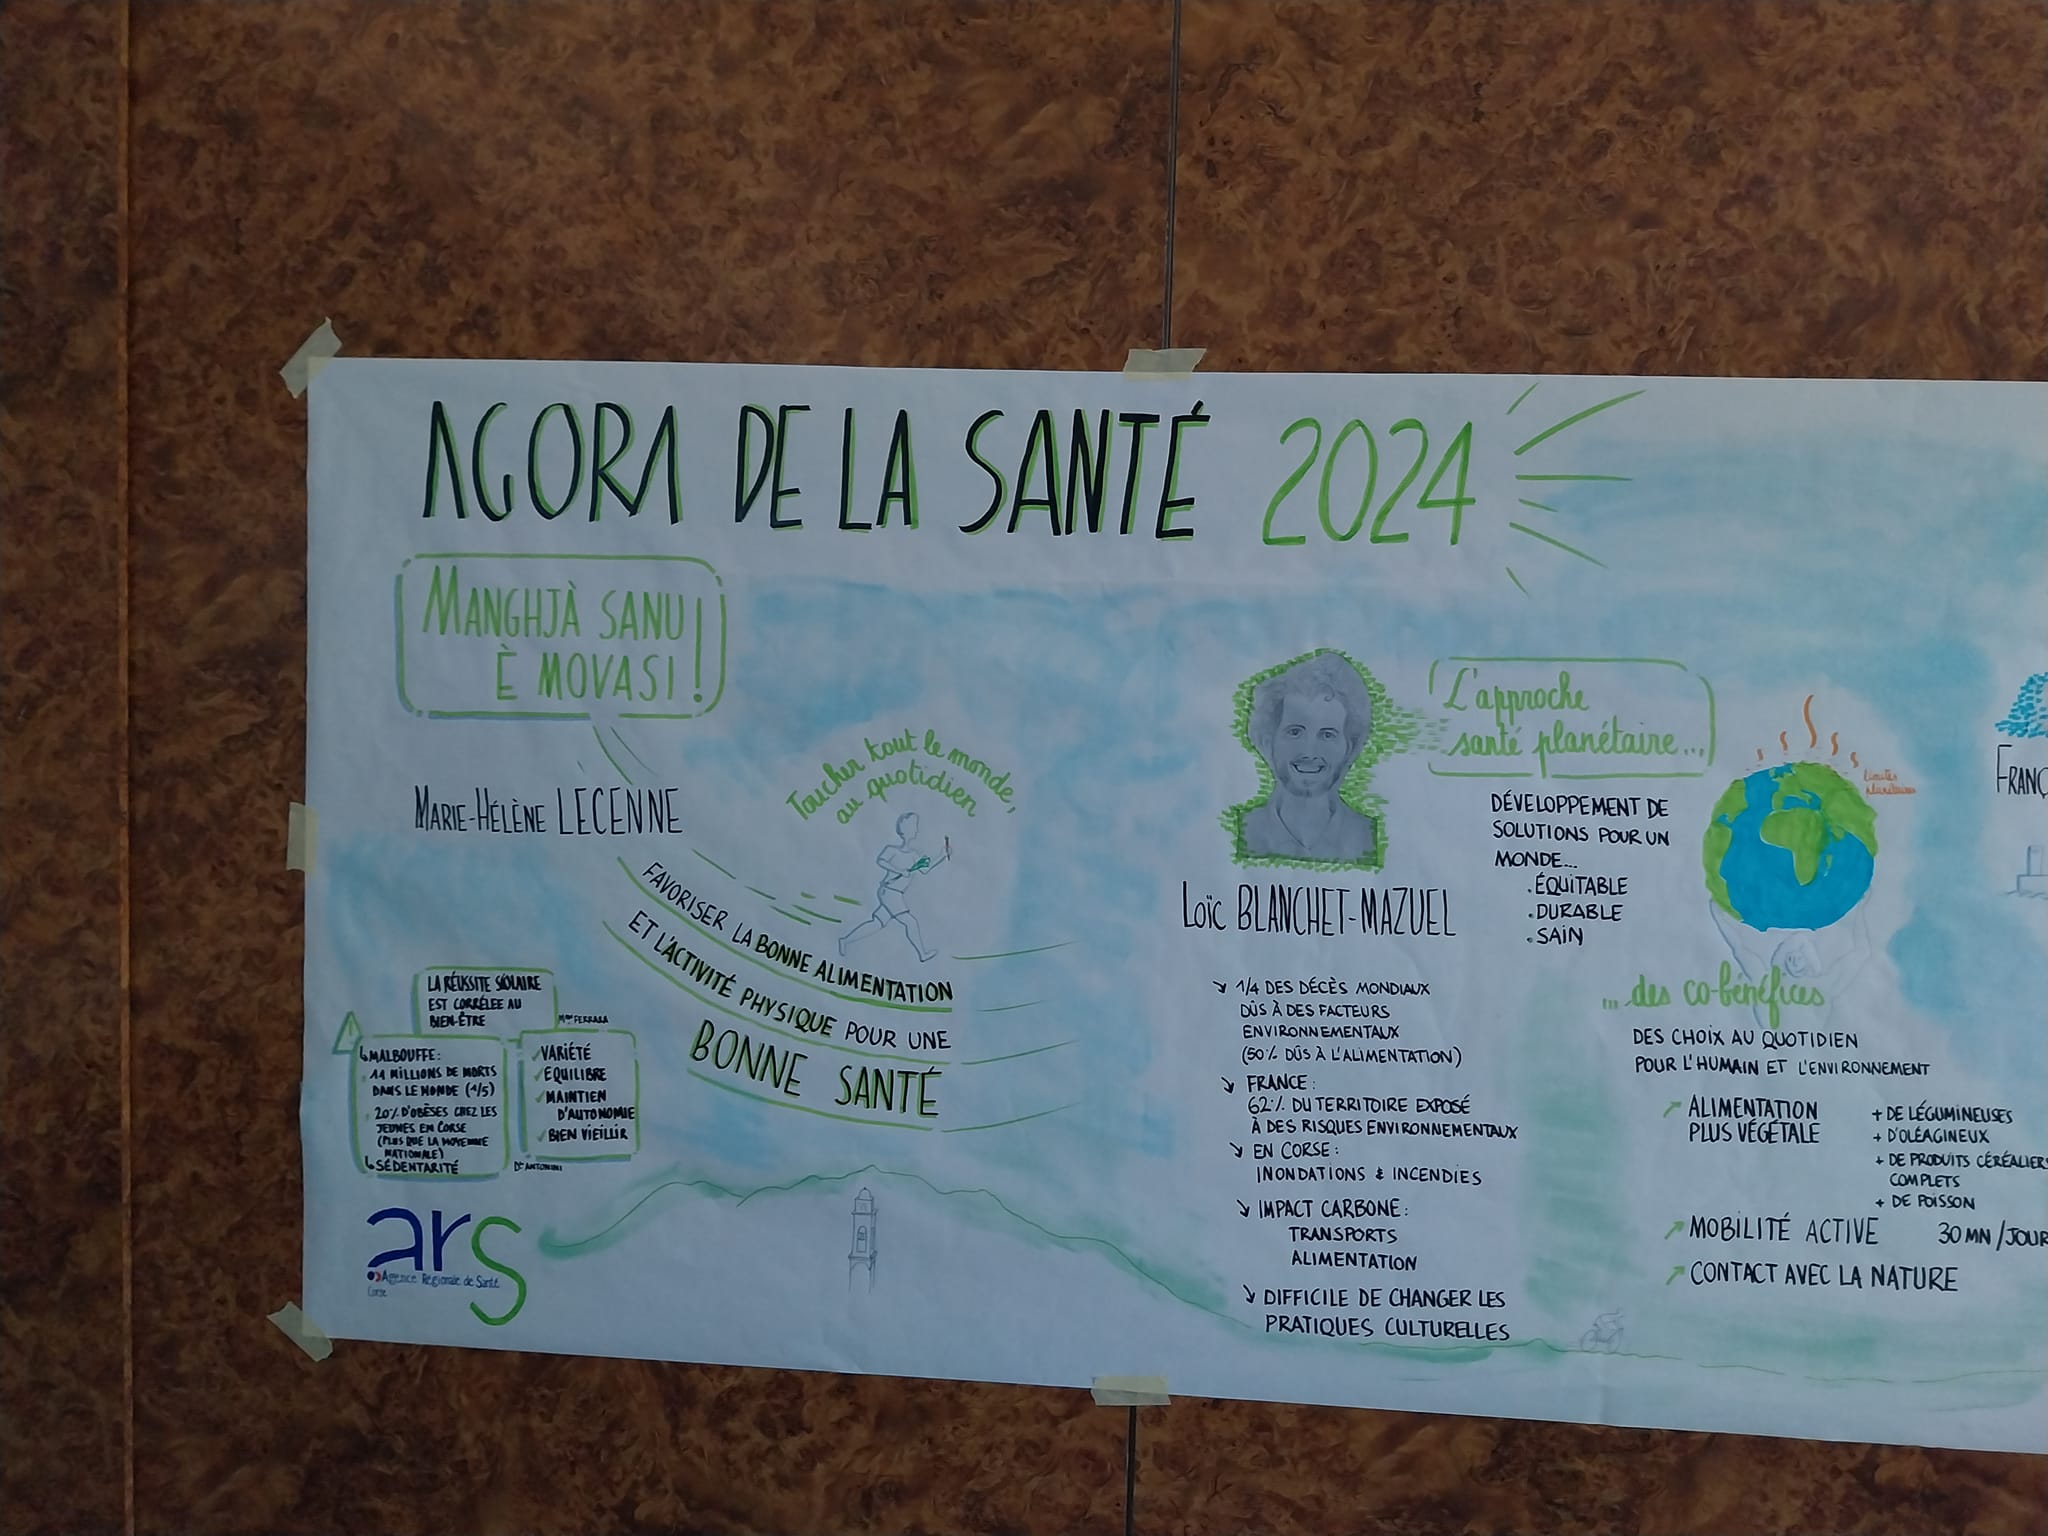 AGORA DE LA SANTÉ 2024
MANGHJÀ SANU
È MOVASI !
MARIE-HÉLÈNE LECENNE
Toucher tout le monde,
au quotidien
FAVORISER LA BONNE ALIMENTATION
ET L'ACTIVITÉ PHYSIQUE POUR UNE
BONNE SANTÉ
LA RÉUSSITE SCOLAIRE
EST CORRÉLÉE AU
BIEN-ÊTRE
Mme FERRARA
MALBOUFFE :
11 MILLIONS DE MORTS
DANS LE MONDE (1/5)
20% D'OBÈSES CHEZ LES
JEUNES EN CORSE
(PLUS QUE LA MOYENNE
NATIONALE)
SÉDENTARITÉ
VARIÉTÉ
EQUILIBRE
MAINTIEN
D'AUTONOMIE
BIEN VIEILLIR
Dr ANTONINI
ars
Agence Régionale de Santé
Corse
L'approche
santé planétaire...
LOÏC BLANCHET-MAZUEL
1/4 DES DÉCÈS MONDIAUX
DÛS À DES FACTEURS
ENVIRONNEMENTAUX
(50% DÛS À L'ALIMENTATION)
FRANCE :
62% DU TERRITOIRE EXPOSÉ
À DES RISQUES ENVIRONNEMENTAUX
EN CORSE :
INONDATIONS & INCENDIES
IMPACT CARBONE :
TRANSPORTS
ALIMENTATION
DIFFICILE DE CHANGER LES
PRATIQUES CULTURELLES
DÉVELOPPEMENT DE
SOLUTIONS POUR UN
MONDE...
. ÉQUITABLE
. DURABLE
. SAIN
limites
planétaires
... des co-bénéfices
DES CHOIX AU QUOTIDIEN
POUR L'HUMAIN ET L'ENVIRONNEMENT
ALIMENTATION
PLUS VÉGÉTALE
+ DE LÉGUMINEUSES
+ D'OLÉAGINEUX
+ DE PRODUITS CÉRÉALIERS
COMPLETS
+ DE POISSON
MOBILITÉ ACTIVE 30 MN /JOUR
CONTACT AVEC LA NATURE
FRANÇ